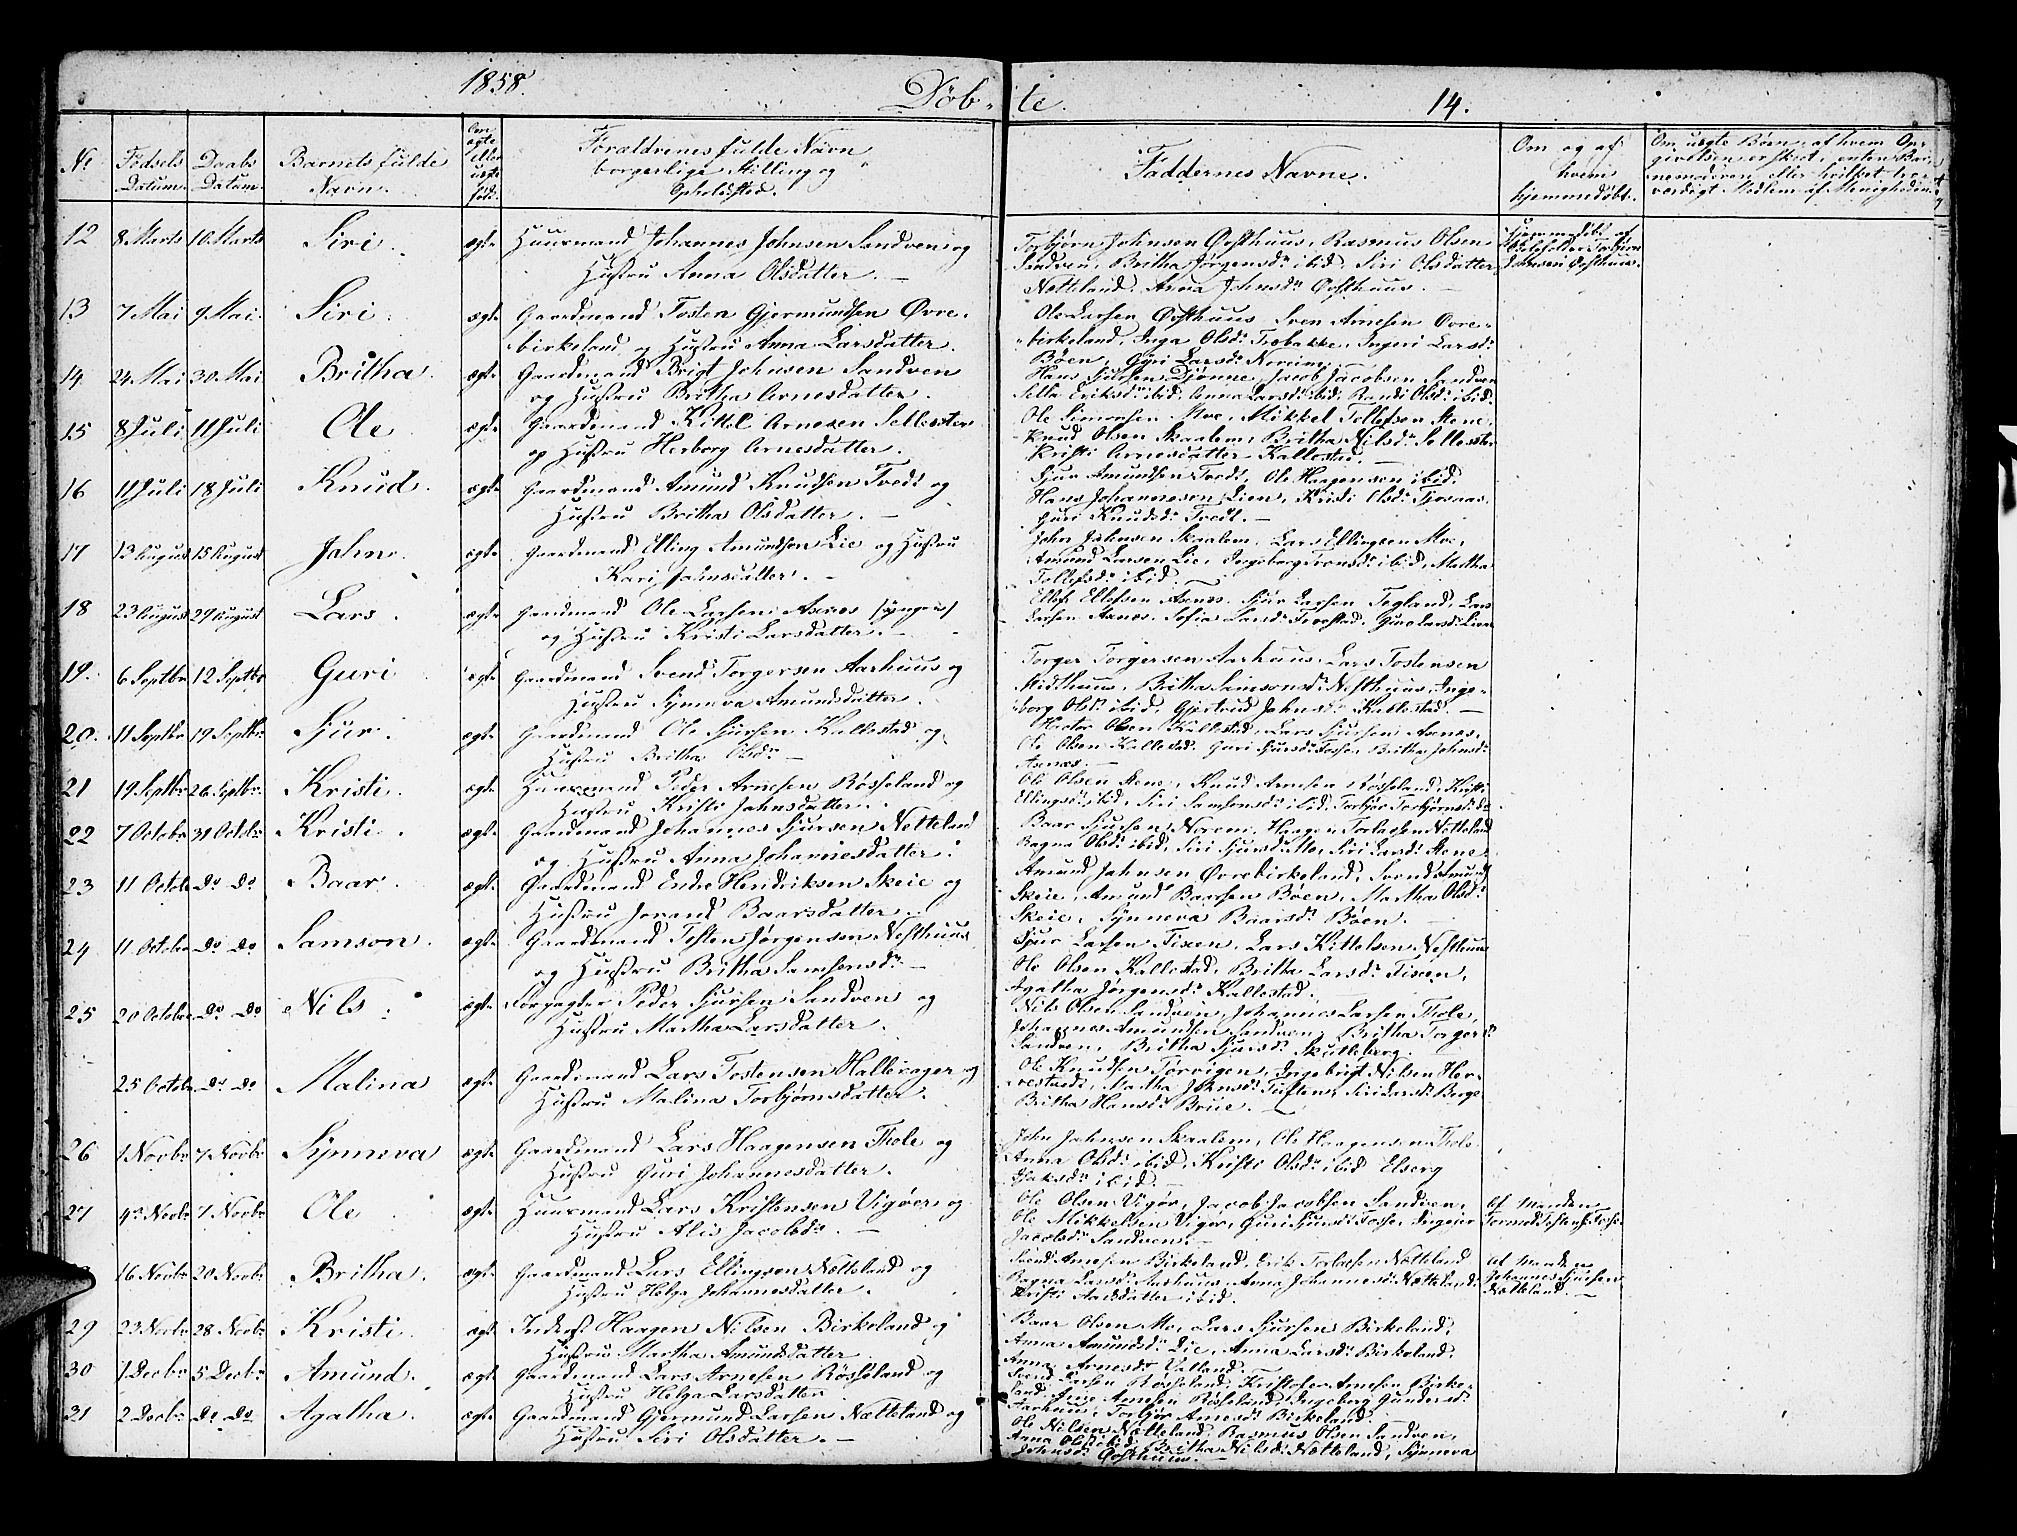 1858.
Döb-
te.
14.
No
Födsels
Datum.
Daabs
Datum.
Barnets fulde
Navn.
Om
ægte
eller
uægte
født.
Forældrenes fulde Navn
borgerlige Stilling og
Opholdsted.
Faddernes Navne.
Om og af
hvem
hjemmedøbt.
Om uægte Børn: af hvem Op-
givelsen er skeet, enten Bar-
nemoderen eller hvilket tro-
værdigt Medlem af Menigheden
12 8 Marts 10 Marts Siri. ægte Huusmand Johannes Johnsen Sandven og
Hustru Anna Olsdatter. —
Torbjørn Johnsen Østhuus, Rasmus Olsen
Sandven, Britha Jørgensdr ibid, Siri Olsdatter
Netteland, Anna Johnsdr Østhuus. —
Hjemmedøbt af
Torbjørn
Johnsen Østhuus.
13 7 Mai 9 Mai. Siri. ægte Gaardmand Tosten Gjermundsen Øvre-
birkeland og Hustru Anna Larsdatter.
Ole Larsen Østhuus, Sven Arnesen Øvre-
birkeland, Inga Olsdr Træbakke, Ingeri Larsdr
Böen, Guri Larsdr Norim.
14 24 Mai 30 Mai Britha. ægte Gaardmand Brigt Johnsen Sandven
og Hustru Britha Arnesdatter.
Hans Djönne, Jacob Jacobsen Sandven
Eriksdr ibid, Anna Larsdr ibid, Randi Olsdr ibid.
15 8 Juli 11 Juli Ole ægte Gaardmand Kittel Arnesen Sellesster
og Hustru Herborg Arnesdatter.
Ole Simonsen Moe, Mikkel Tollefsen Stene,
Knud Olsen Skaalem, Britha Nilsdr Sellesster
Kristi Arnesdatter Kallestad. —
16 11 Juli 18 Juli Knud. ægte Gaardmand Amund Knudsen Tvedt og
Hustru Britha Olsdatter. —
Sjur Amundsen Tvedt, Ole Haagensen ibid.
Hans Johannesen Lien, Kristi Olsdr
Guri Knudsdr Tvedt. —
17 13 August 15 August John. ægte Gaardmand Elling Amundsen Lie og Hustru
Kari Johnsdatter. —
John Johnsen Skaalem, Lars Ellingsen Moe,
Amund Larsen Lie, Ingeborg ibid, Martha
Tollefsdr ibid.
18 23 August 29 August Lars. ægte Gaardmand Ole Larsen Axnes (yngere)
og Hustru Kristi Larsdatter. —
Ellef Ellefsen Axnes, Sjur Larsen Tegland, Lars
Larsen Axnes, Sofia Larsdr
19. 6 Septbr 12 Septbr Guri ægte Gaardmand Svend Torgersen Aarhuus og
Hustru Synneva Amundsdatter.
Torger Torgersen Aarhuus, Lars Tostensen
Midthuus, Britha Samsonsdr Nesthuus, Inge-
borg Olsdr ibid, Gjertrud Johnsdr Kallestad. —
20. 11 Septbr 19 Septbr Sjur. ægte Gaardmand Ole Sjursen Kallestad og
Hustru Britha Olsdr —
Olsen Kallestad, Lars Sjursen Axnes,
Ole Olsen Kallestad, Guri Sjursdr Tosse, Britha Johnsdr
Axnes. —
21 19 Septbr 26 Septbr. Kristi. ægte Huusmand Peder Arnesen Rösseland og
Hustru Kristi Johnsdatter.
Ole Olsen Stene, Knud Arnesen Rösseland, Kristi
Ellingsdr ibid, Siri Samsonsdr ibid, Torbjør Torbjørnsdr do
22 7 October 31 Octobr Kristi. ægte Gaardmand Johannes Sjursen Netteland
og Hustru Anna Johannesdatter.
Baar Sjursen Norem, Haagen Torlagsen Netteland
Ragna Olsdr ibid, Siri Sjursdr Mo, Siri Larsdr Stene
23 11 Octobr Do Do Baar. ægte Gaardmand Endre Hendriksen Skeie og
Hustru Jorand Baarsdatter.
Amund Johnsen Øvrebirkeland, Svend Amunds
Skeie, Amund Baarsen Böen, Martha Olsdr
Skeie, Synneva Baarsdr Böen. —
24 11 Octobr Do Do Samson. ægte Gaardmand Tosten Jørgensen Nesthuus
og Hustru Britha Samsonsdr —
Sjur Larsen Fixen, Lars Kittelsen Nesthuus
Ole Olsen Kallestad, Britha Larsdr Fixen,
Agatha Jørgensdr Kallestad. —
25 20 Octobr Do Do Nils. ægte Forpagter Peder Sjursen Sandven og
Hustru Martha Larsdatter.
Nils Olsen Sandven, Johannes Larsen Thole,
Johannes Amundsen Sandven, Britha Torgersdr
Sandven, Britha Sjursdr Skutleberg.
25 Octobr Do Do Malina ægte Gaardmand Lars Tostensen Hallerager og
Hustru Malina Torbjørnsdatter.
Ole Knudsen Torvigen, Ingebrigt Nilsen Her-
restvedt, Martha Johnsdr Tuften, Siri Larsdr Berge
Britha Hansdr Brue. —
26 1 Novbr 7 Novbr Synneva ægte Gaardmand Lars Haagensen Thole og
Hustru Guri Johannesdatter.
John Johnsen Skaalem, Ole Haagensen Thole
Anna Olsdr ibid, Kristi Olsdr ibid Elserg
Isaksdr ibid. —
27 4de Novbr 7 Novbr Ole ægte Huusmand Lars Kristensen Vigøer og
Hustru Alis Jacobsdr. —
Ole Olsen Vigør, Jacob Jacobsen Sandven,
Ole Mikkelsen Vigør, Guri Sjursdr Tosse, Ingeger
Jacobsdr Sandven. —
Af Manden
Tormod Tostens. Tosse.
16 Novbr 20 Novbr Britha. ægte Gaardmand Lars Ellingsen Netteland og
Hustru Helga Johannesdatter.
Svend Arnesen Birkeland, Erik Torlagsen Netteland
Ragna Larsdr Aarhuus, Anna Johannesdr Netteland,
Kristi Aadsdatter ibid.
Af Manden
Johannes Sjursen
Netteland. —
29 23 Novbr 28 Novbr Kristi. ægte Inderst Haagen Nilsen Birkeland og
Hustru Martha Amundsdatter
Baar Olsen Mo, Lars Sjursen Birkeland,
Anna Amundsdr Lie, Anna Larsdr Birkeland,
Anna Arnesdr Valland.
30 1 Decbr 5 Decbr Amund. ægte Gaardmand Lars Arnesen Rösseland og
Hustru Helga Larsdatter
Svend Larsen Rösseland, Kristofer Arnesen Birke-
land, Arne Arnesen Rösseland, Ingeborg Gundersdr
Aarhuus, Torbjør Arnesdr Birkeland.
31 2 Decbr Do Do Agatha. ægte Gaardmand Gjermund Larsen Netteland og
Hustru Siri Olsdatter. —
Ole Nilsen Netteland, Rasmus Olsen Sandven,
Anna Olsdr ibid, Britha Nilsdr Netteland, Synneva
Johnsdr Østhuus. —